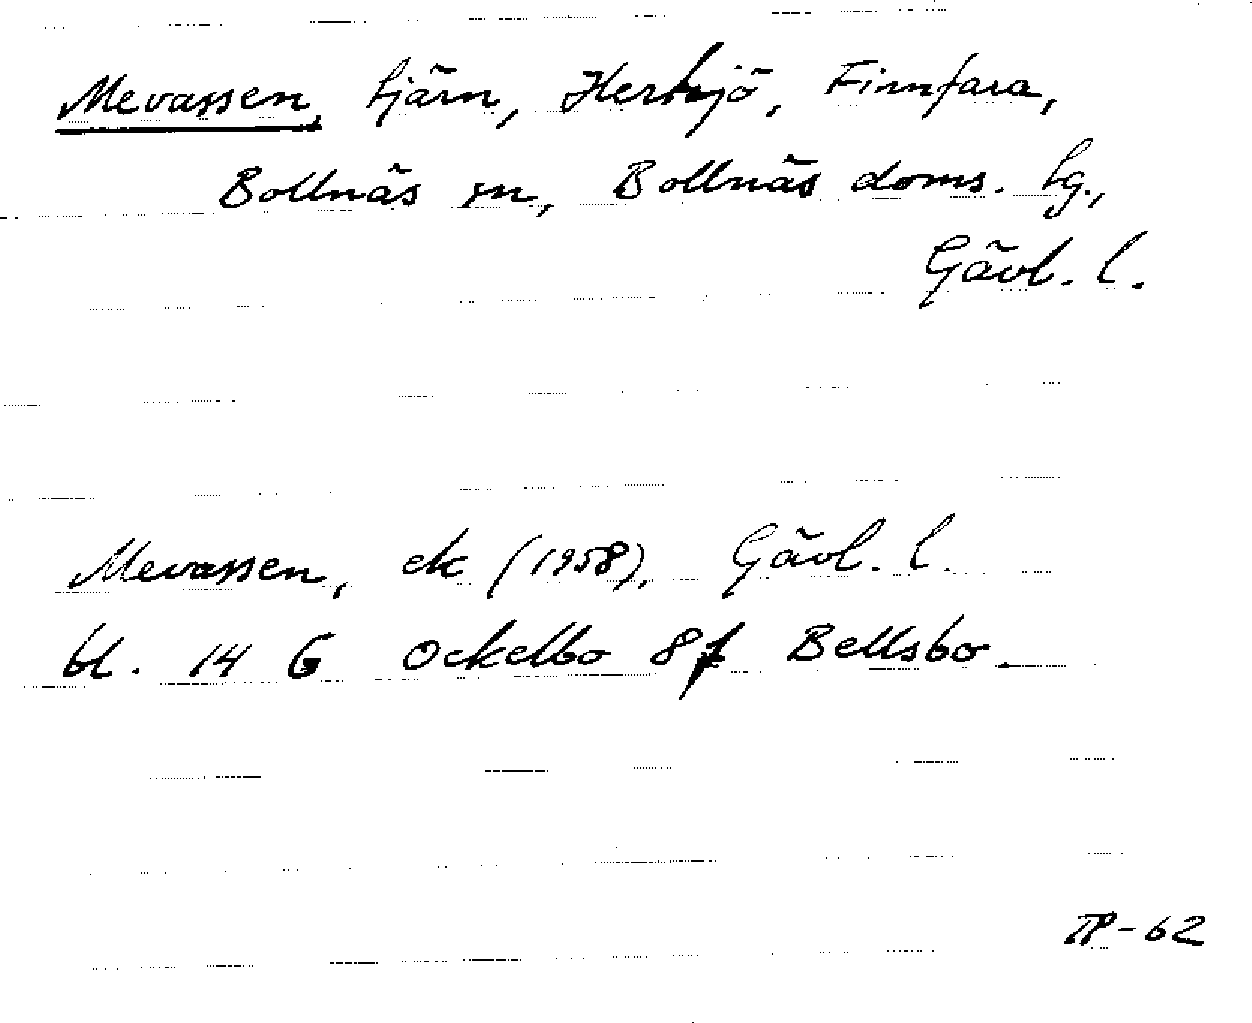 Mevassen, tjärn, Hertsjö, Finnfara,
Bollnäs sn, Bollnäs doms. tg.,
Gävl. l.
Mevassen, ek (1958), Gävl. l.
bl. 14 G Ockelbo 8f Bellsbo.
TP-62